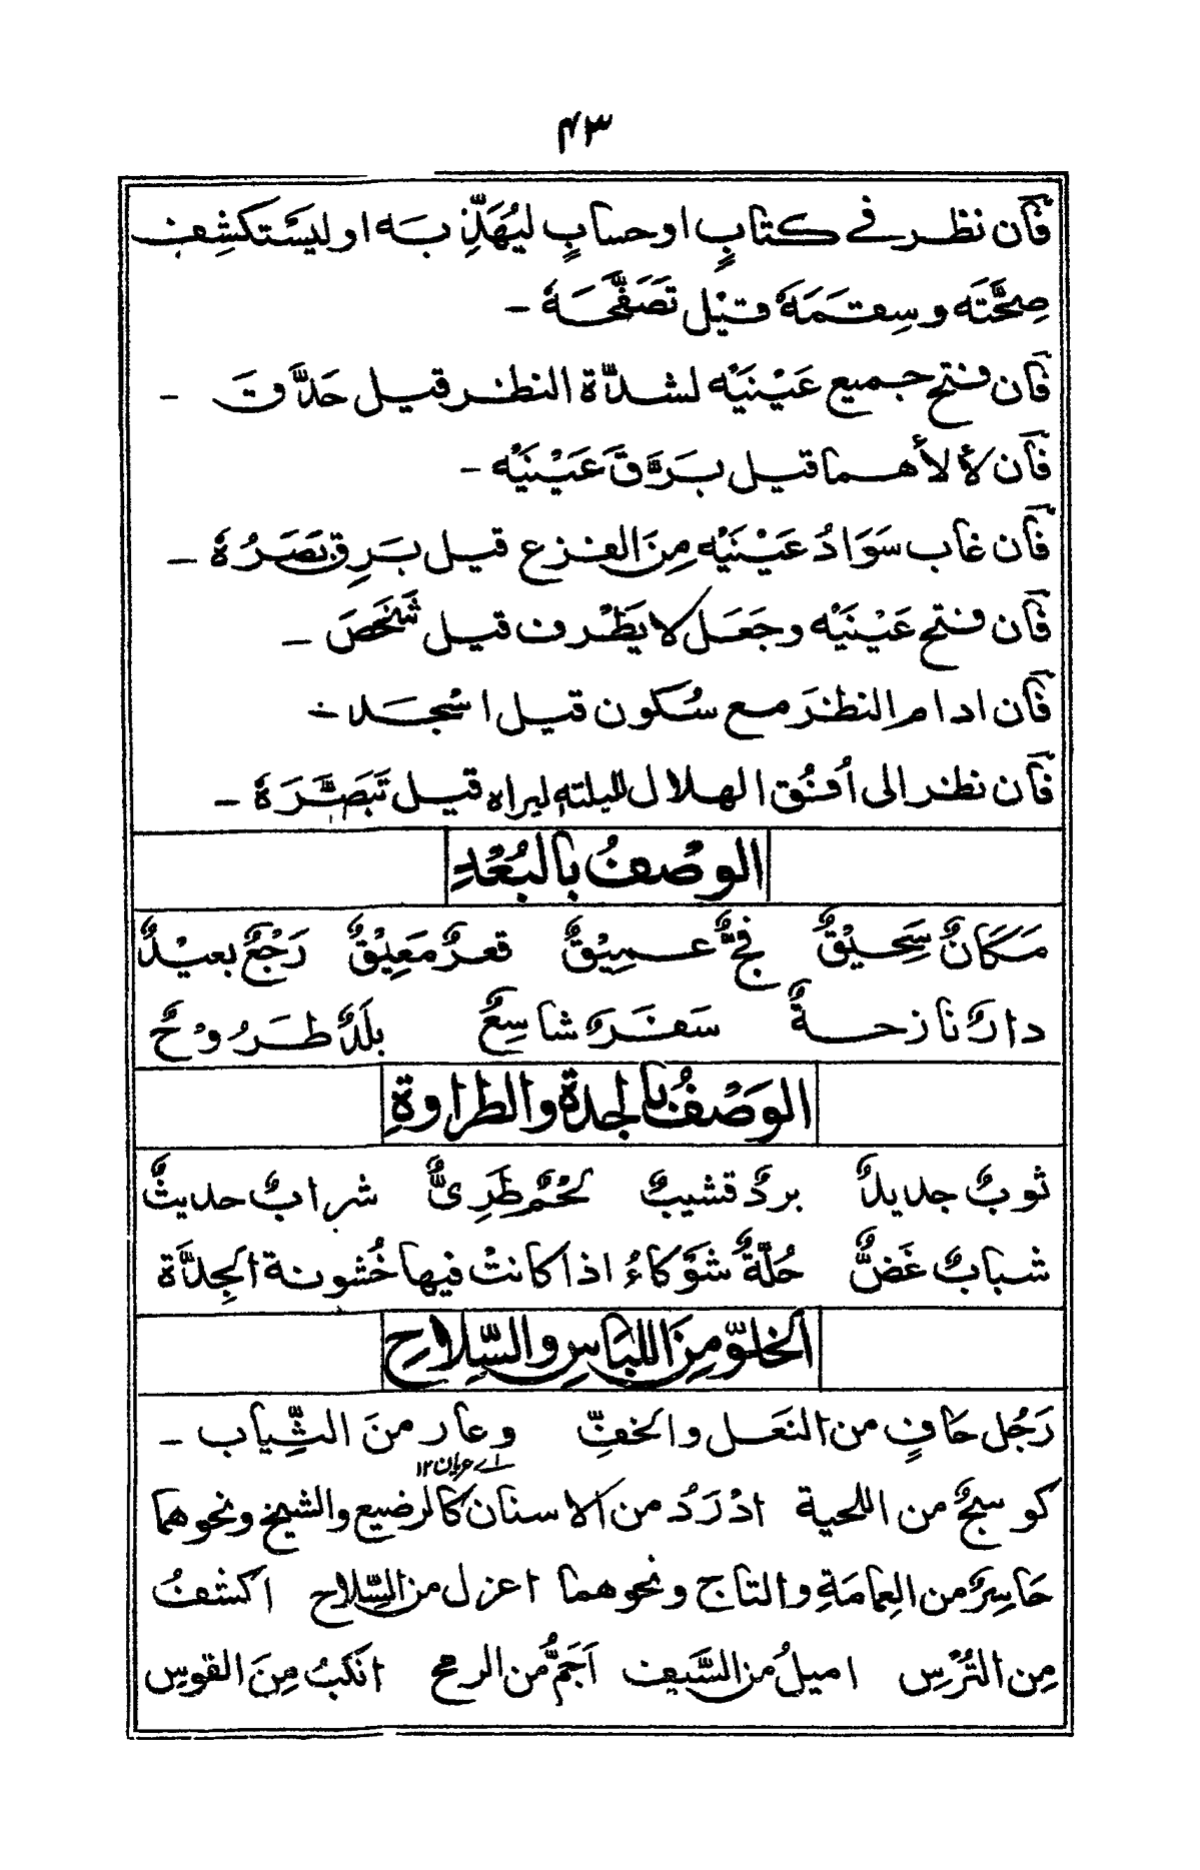 ۴۳
فَاَن نظر فے كتابٍ او حسابٍ ليُهَذِّ بَه او ليَسْتَكشِف
صِحَّتَه و سِقمَهٗ قيْل تَصَفَّحَهٗ -
فَاَن فتح جميع عَيْنَيْه لشدَّة النظر قيل حَدَّقَ -
فَاَن لأ لأهما قيل بَرَّقَ عَيْنَيْه -
فَاَن غاب سَوَادُ عَيْنَيْهِ مِنَ الفزع قيل بَرِق بَصَرُهٗ -
فَاَن فتح عَيْنَيْه وجَعَل لا يَطْرف قيل شَخَصَ -
فَاَن ادام النظرَ مع سُكون قيل اسْجَدَ -
فَاَن نظر الى اُفُق الهلال لليلته ليراه قيل تَبَصَّرَهٗ -
الوصْفُ بالبُعْدِ
مَكَانٌ سَحِيْقٌ فَجٌّ عَمِيْقٌ قعرٌ مَعِيْقٌ رَجْعٌ بعيْدٌ
دارٌ نازحةٌ سَفَرٌ شاسِعٌ بلَدٌ طَرُوْحٌ
الوَصْفُ بالجدة والطراوةِ
ثوبٌ جديدٌ بردٌ قشيبٌ لحْمٌ طَرِىٌّ شرابٌ حديثٌ
شبابٌ غَضٌّ حُلَّةٌ شَوْكاءُ اذا كانتْ فيها خُشونة الجِدَّة
الخلوّ مِنَ اللباسِ والسِّلاحِ
رَجُل حَافٍ من النَعَل والخفِّ وعار منَ الثِّياب -
اے عريان ١٢
كوسجٌ من اللحية ادْرَدُ من الاسنان كالرضيع والشيخ ونحوهما
حَاسِرٌ من العِمامَةِ والتاج ونحوهما اعزل من السِّلاح اكشفُ
مِن التُرْس اميلُ من السَّيف اَجَمُّ من الرمح انكَبُ مِنَ القوسِ